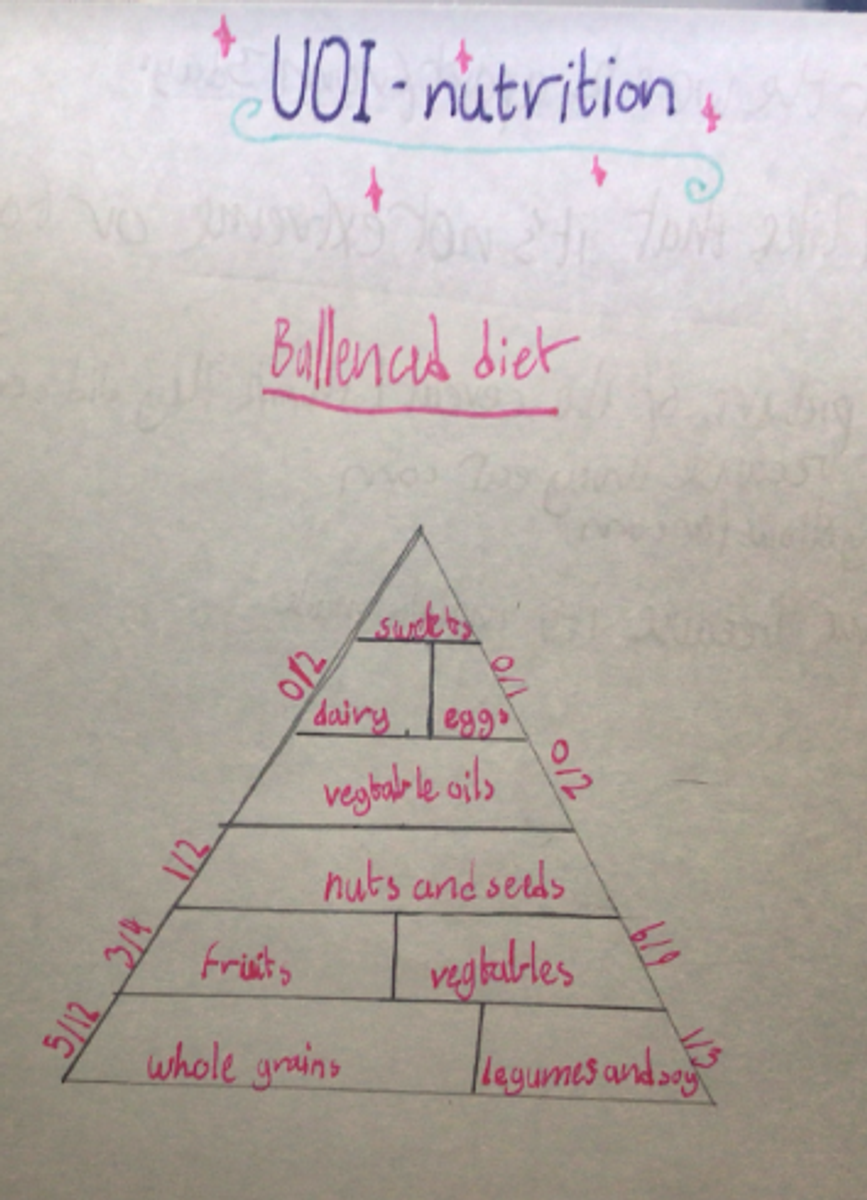 UOI - nutrition
Ballenced diet
sweets
0/2 dairy eggs 0/1
vegtable oils 0/2
1/2 nuts and seeds
3/4 fruits vegtables 6/9
5/12 whole grains legumes and soy 1/3